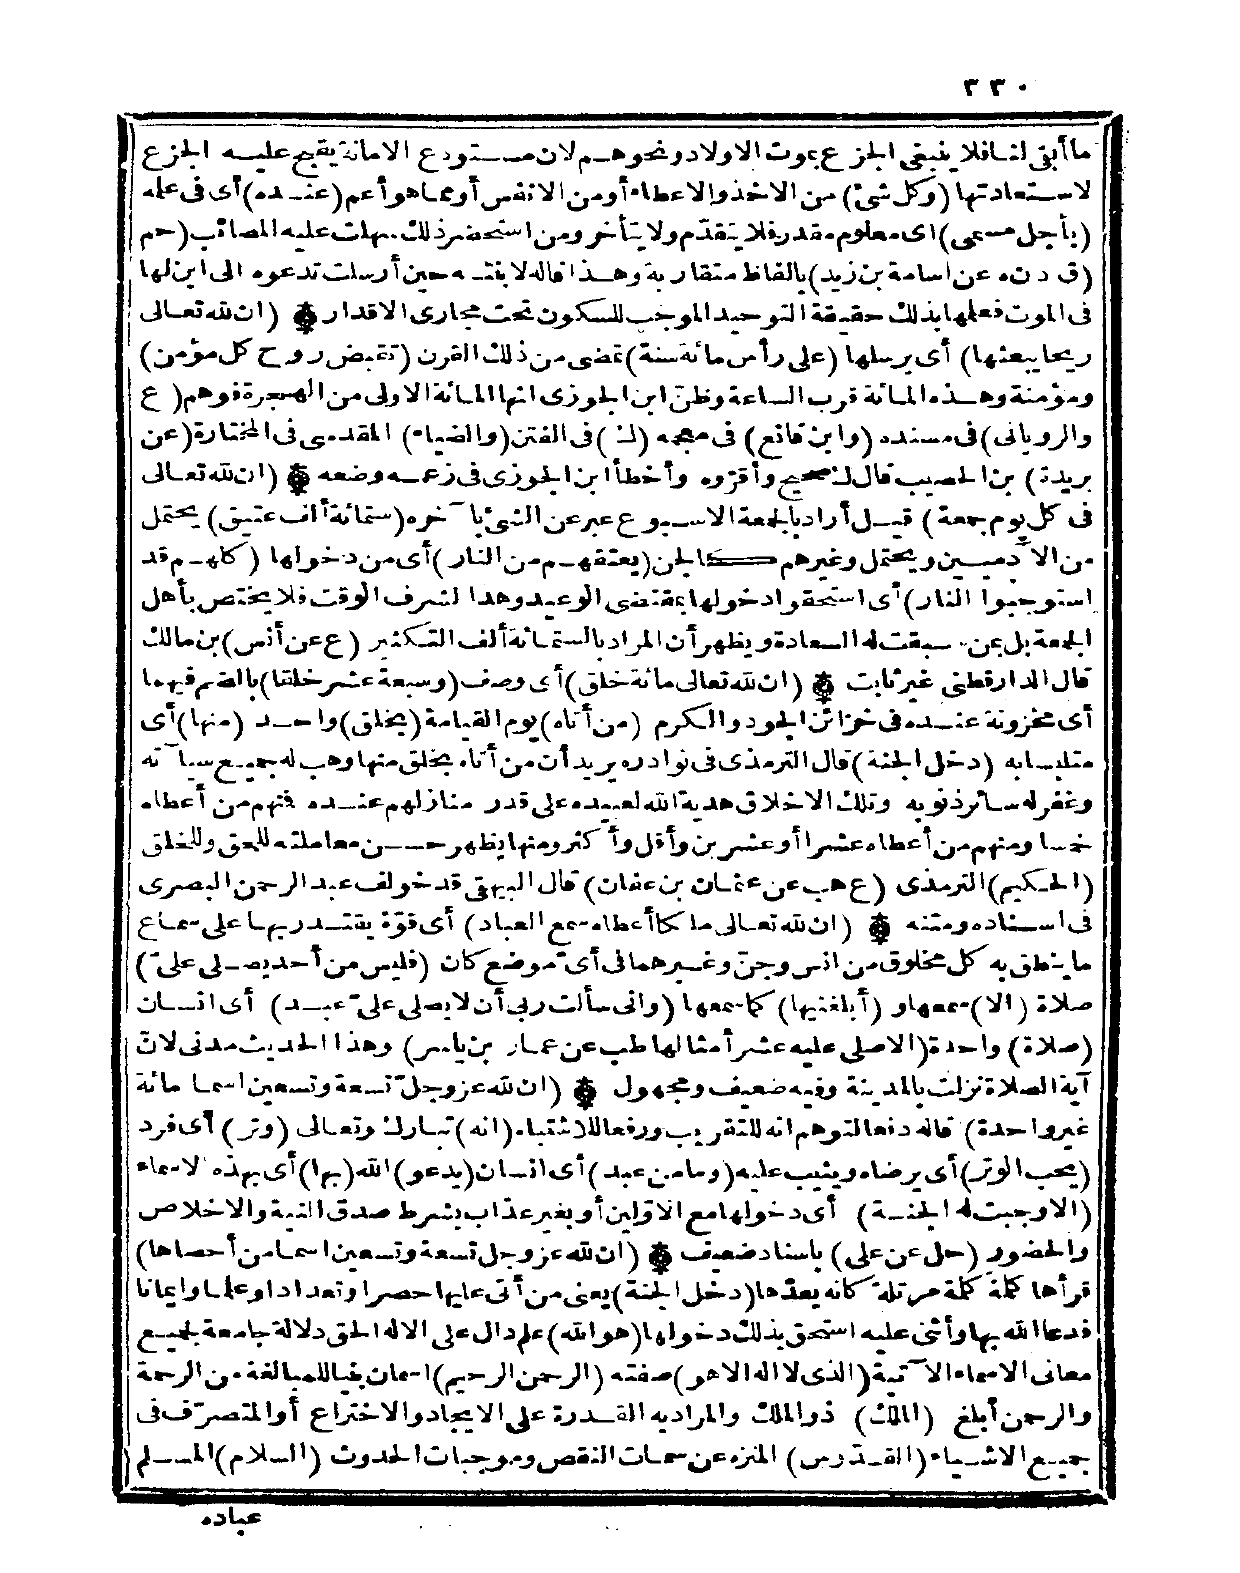 ٣٣٠
ما أبقى لنا فلا ينبغى الجزع بموت الاولاد ونحوهم لان مستودع الامانة يقبح عليه الجزع
لاستعادتها (وكل شئ) من الاخذ والاعطاء أو من الانفس أو مما هو أعم (عنده) أى فى علمه
(بأجل مسمى) اى معلوم مقدر فلا يتقدّم ولا يتأخر ومن استحضر ذلك سهلت عليه المصائب (حم
(ق د ن ه عن اسامة بن زيد) بالفاظ متقاربة وهذا قاله لابنته حين أرسلت تدعوه الى ابن لها
فى الموت فعلمها بذلك حقيقة التوحيد الموجب للسكون تحت مجارى الاقدار ۞ (ان لله تعالى
ريحا يبعثها) أى يرسلها (على رأس مائة سنة) تمضى من ذلك القرن (تقبض روح كل مؤمن)
ومؤمنة وهذه المائة قرب الساعة وظنّ ابن الجوزى انها المائة الاولى من الهجرة فوهم (ع
والرويانى) فى مسنده (وابن قانع) فى معجمه (ك) فى الفتن (والضياء) المقدسى فى المختارة (عن
بريدة) بن الحصيب قال ك صحيح وأقرّوه وأخطأ ابن الجوزى فى زعمه وضعه ۞ (ان لله تعالى
فى كل يوم جمعة) قيل أراد بالجمعة الاسبوع عبر عن الشئ بآخره (ستمائة ألف عتيق) يحتمل
من الآدميين ويحتمل وغيرهم كالجن (يعتقهم من النار) أى من دخولها (كلهم قد
استوجبوا النار) أى استحقوا دخولها بمقتضى الوعيد وهذا لشرف الوقت فلا يختص بأهل
الجمعة بل بمن سبقت له السعادة ويظهر أن المراد بالستمائة ألف التكثير (ع عن أنس) بن مالك
قال الدارقطنى غير ثابت ۞ (ان لله تعالى مائة خلق) أى وصف (وسبعة عشر خلقا) بالضم فيهما
أى مخزونة عنده فى خزائن الجود والكرم (من أتاه) يوم القيامة (بخلق) واحد (منها) أى
متلبسا به (دخل الجنة) قال الترمذى فى نوادره يريد أن من أتاه بخلق منها وهب له جميع سيآته
وغفر له سائر ذنوبه وتلك الاخلاق هدية الله لعبيده على قدر منازلهم عنده فمنهم من أعطاه
خمسا ومنهم من أعطاه عشرا أو عشرين وأقل وأكثر ومنها يظهر حسن معاملته للحق وللخلق
(الحكيم) الترمذى (ع هب عن عثمان بن عفان) قال البيهقى قد خولف عبد الرحمن البصرى
فى اسناده ومتنه ۞ (ان لله تعالى ملكا أعطاه سمع العباد) أى قوّة يقتدر بها على سماع
ما ينطق به كل مخلوق من انس وجنّ وغيرهما فى أىّ موضع كان (فليس من أحد يصلى علىّ)
صلاة (الا) سمعها و (أبلغنيها) كما سمعها (وانى سألت ربى أن لا يصلى علىّ عبد) أى انسان
(صلاة) واحدة (الا صلى عليه عشر أمثالها طب عن عمار بن ياسر) وهذا الحديث مدنى لانّ
آية الصلاة نزلت بالمدينة وفيه ضعيف ومجهول ۞ (ان لله عز وجلّ تسعة وتسعين اسما مائة
غير واحدة) قاله دفعا لتوهم انه للتقريب ورفعا للاشتباه (انه) تبارك وتعالى (وتر) أى فرد
(يحب الوتر) أى يرضاه ويثيب عليه (وما من عبد) أى انسان (يدعو) الله (بها) أى بهذه الاسماء
(الا وجبت له الجنة) أى دخولها مع الاوّلين أو بغير عذاب بشرط صدق النية والاخلاص
والحضور (حل عن على) باسناد ضعيف ۞ (ان لله عز وجل تسعة وتسعين اسما من أحصاها)
قرأها كلمة كلمة مرتلة كانه يعدّها (دخل الجنة) يعنى من أتى عليها حصرا وتعدادا وعلما وايمانا
فدعا الله بها وأثنى عليه استحق بذلك دخولها (هو الله) علم دال على الاله الحق دلالة جامعة لجميع
معانى الاسماء الآتية (الذى لا اله الا هو) صفته (الرحمن الرحيم) اسمان بنيا للمبالغة من الرحمة
والرحمن أبلغ (الملك) ذو الملك والمراد به القدرة على الايجاد والاختراع أو المتصرّف فى
جميع الاشياء (القدّوس) المنزه عن سمات النقص وموجبات الحدوث (السلام) المسلم
عباده